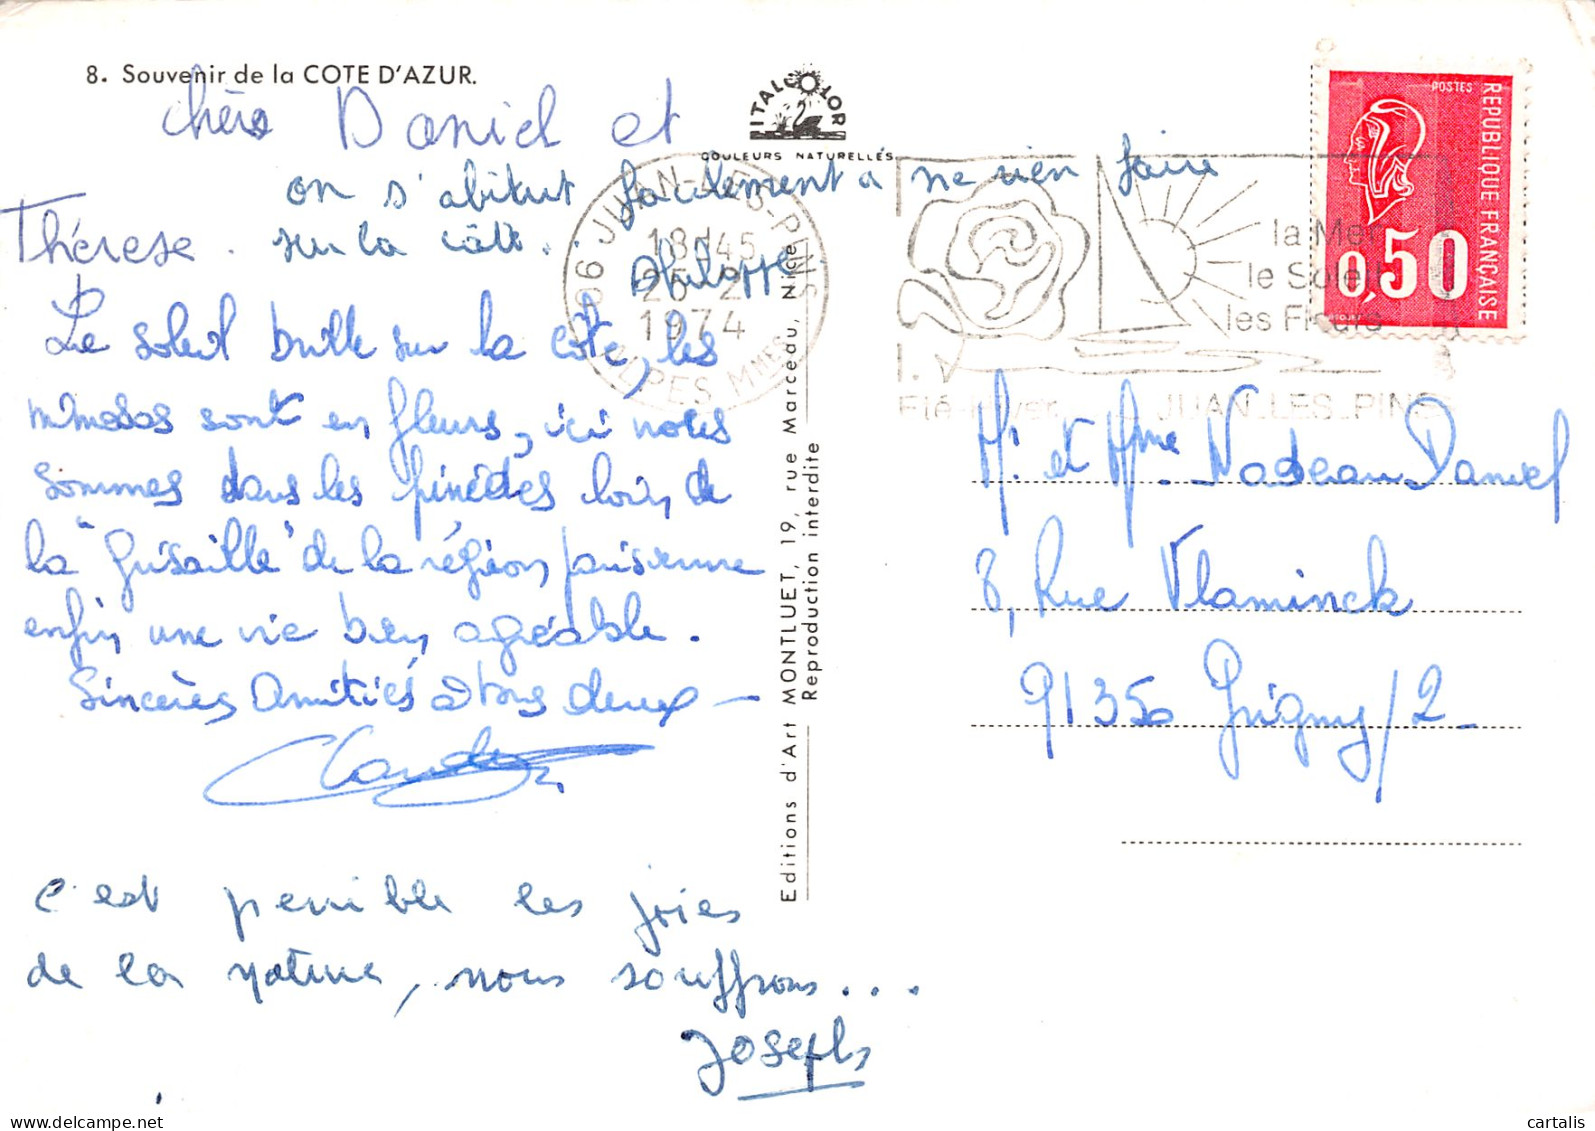 8. Souvenir de la COTE D'AZUR.
ITALCOLOR
COULEURS NATURELLES
Chers Daniel et
Thérese.
on s'abitut facilement a ne rien faire
sur la côte.
Philippe
Le soleil brille sur la côte, les
mimosas sont en fleurs, ici nous
sommes dans les pinèdes loin de
la "grisaille" de la région parisienne
enfin une vie bien agréable.
Sincères Amitiés à tous deux —
Claude
c'est penible les joies
de la nature, nous souffrons...
Joseph
Editions d'Art MONTLUET, 19, rue Marceau, Nice
Reproduction interdite
06 JUAN-LES-PINS
18H45
25-2
1974
ALPES MMES
la Mer
le Soleil
les Fleurs
Eté-Hiver
JUAN_LES_PINS
POSTES
REPUBLIQUE FRANÇAISE
0,50
Mr et Mme Nadeau Daniel
8, Rue Vlaminck
91350 Grigny/2
cartalis